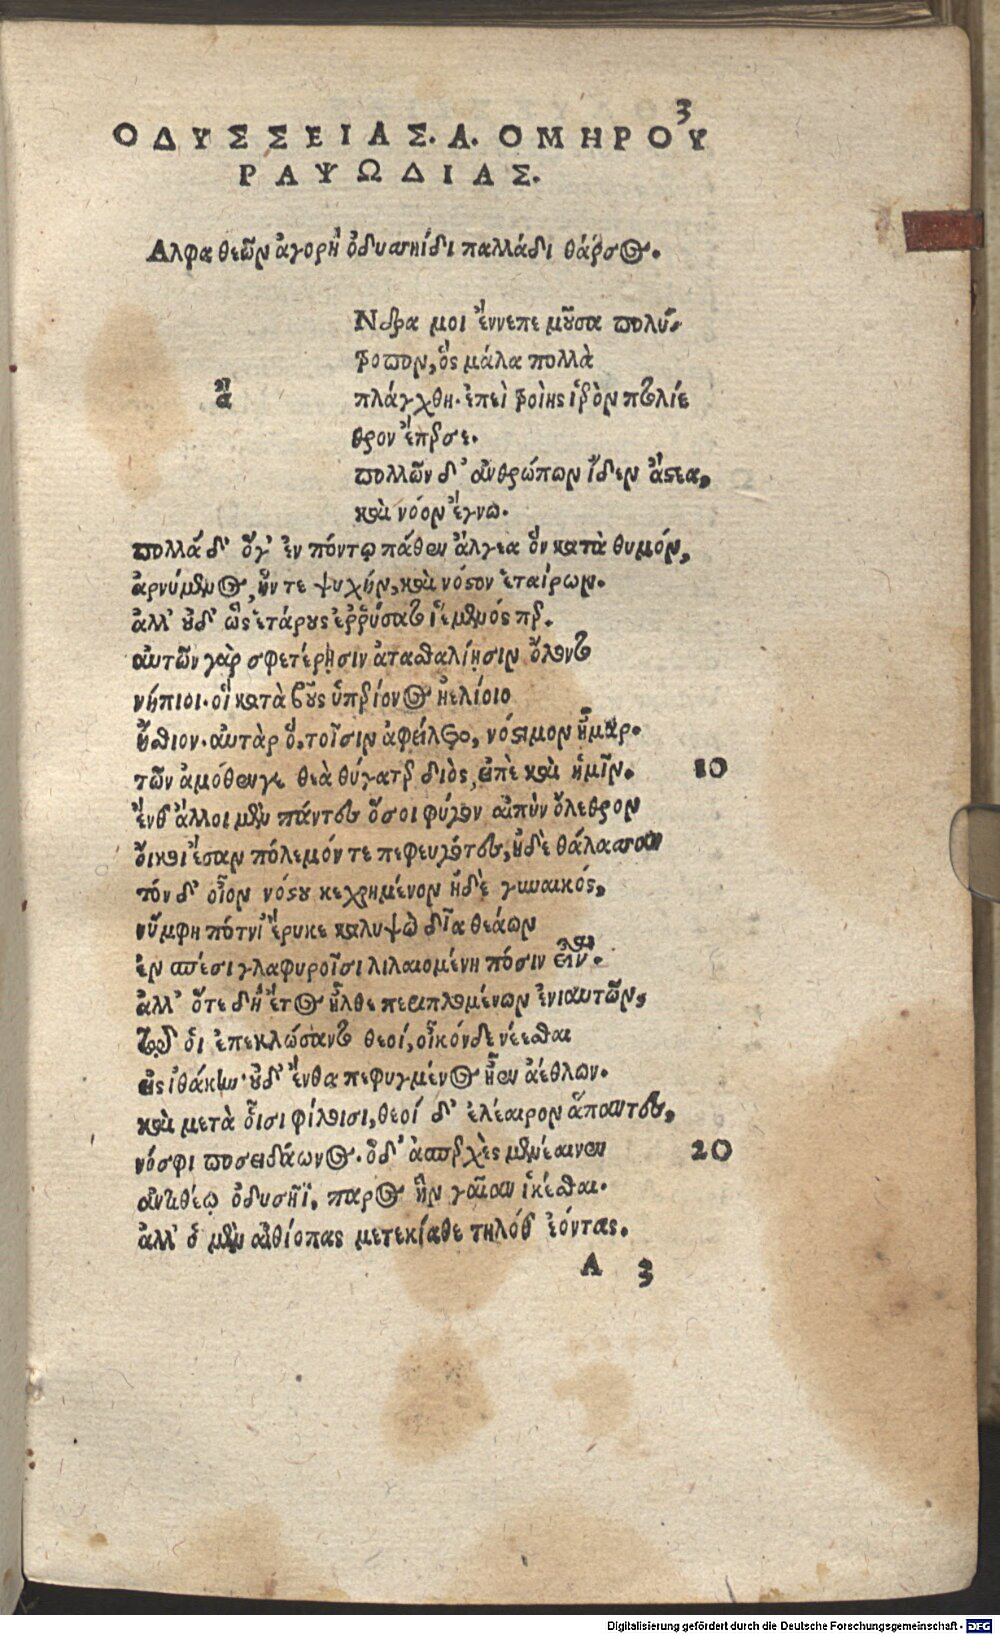 3
ΟΔΥΣΣΕΙΑΣ. Α. ΟΜΗΡΟΥ
ΡΑΨΩΔΙΑΣ.
Αλφα θεῶν ἀγορὴ ὀδυσηίδι παλλάδι θάρσος.
Νδρα μοι ἔννεπε μοῦσα πολύ-
τροπον, ὃς μάλα πολλὰ
ἄ
πλάγχθη. ἐπεὶ τροίης ἱερὸν πτολίε
θρον ἔπερσε.
πολλῶν δ' ἀνθρώπων ἴδεν ἄστεα,
καὶ νόον ἔγνω.
πολλὰ δ' ὅγ' ἐν πόντῳ πάθεν ἄλγεα ὃν κατὰ θυμόν,
ἀρνύμενος, ἥν τε ψυχὴν, καὶ νόστον ἑταίρων.
ἀλλ' οὐδ' ὣς ἑτάρους ἐῤῥύσατο ἱέμενός περ.
αὐτῶν γὰρ σφετέρῃσιν ἀτασθαλίῃσιν ὄλοντο
νήπιοι. οἳ κατὰ βοῦς ὑπερίονος ἠελίοιο
ἤσθιον. αὐτὰρ ὅ, τοῖσιν ἀφείλετο, νόστιμον ἦμαρ.
τῶν ἁμόθενγε θεὰ θύγατερ διὸς, εἰπὲ καὶ ἡμῖν. 10
ἔνθ' ἄλλοι μὲν πάντες ὅσοι φύγον αἰπὺν ὄλεθρον
οἴκοι ἔσαν πόλεμόν τε πεφευγότες, ἠδὲ θάλασσαν
τόν δ' οἶον νόστου κεχρημένον ἠδὲ γυναικός,
νύμφη πότνι' ἔρυκε καλυψὼ δῖα θεάων
ἐν σπέσι γλαφυροῖσι λιλαιομένη πόσιν εἶναι.
ἀλλ' ὅτε δὴ ἔτος ἦλθε περιπλομένων ἐνιαυτῶν,
τῷ οἱ ἐπεκλώσαντο θεοί, οἶκόνδε νέεσθαι
εἰς ἰθάκην. οὐδ' ἔνθα πεφυγμένος ἦεν ἀέθλων.
καὶ μετὰ οἷσι φίλοισι, θεοί δ' ἐλέαιρον ἅπαντες,
νόσφι ποσειδάωνος. ὃδ' ἀσπερχὲς μενέαινεν 20
ἀντιθέῳ ὀδυσῆϊ, παρος ἣν γαῖαν ἱκέσθαι.
ἀλλ' ὁ μὲν αἰθίοπας μετεκίαθε τηλόθ' ἐόντας.
A 3
Digitalisierung gefördert durch die Deutsche Forschungsgemeinschaft - DFG